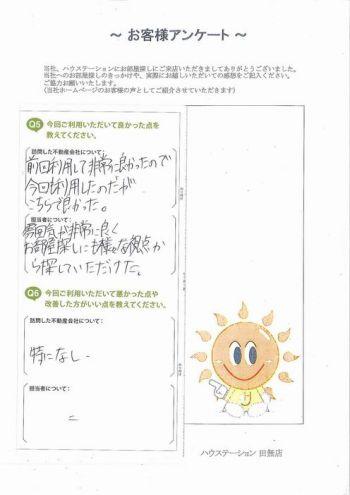 ～ お客様アンケート ～
当社、ハウステーションにお部屋探しにご来店いただきましてありがとうございました。
当社へのお部屋探しのきっかけや、実際にお越しいただいての感想をご記入ください。
ご協力お願いいたします。
(当社ホームページのお客様の声としてご紹介させていただきます)
Q5 今回ご利用いただいて良かった点を
教えてください。
訪問した不動産会社について：
前回利用して非常に良かったので
今回も利用したのだが
こちらで良かった。
担当者について：
雰囲気が非常に良く
お部屋探しにも様々な視点か
ら探していただけた。
Q6 今回ご利用いただいて悪かった点や
改善した方がいい点を教えてください。
訪問した不動産会社について：
特になし
担当者について：
〃
ハウステーション 田無店